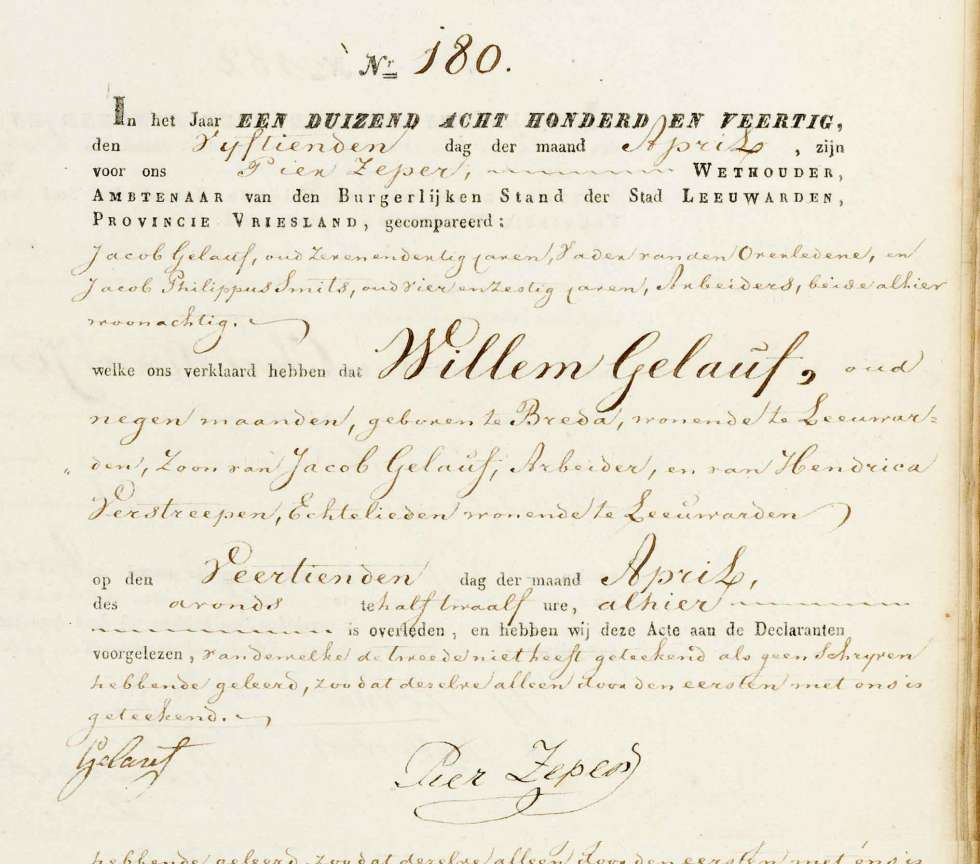 Nr 180.
In het Jaar EEN DUIZEND ACHT HONDERD EN VEERTIG,
den Vyftienden dag der maand April, zijn
voor ons Pier Zeper, WETHOUDER,
AMBTENAAR van den Burgerlijken Stand der Stad LEEUWARDEN,
PROVINCIE VRIESLAND, gecompareerd:
Jacob Gelauf, oud zevenendertig jaren, Vader van den Overledene, en
Jacob Philippus Smits, oud vier en zestig jaren, Arbeiders, beide alhier
woonachtig.
welke ons verklaard hebben dat Willem Gelauf, oud
negen maanden, geboren te Breda, wonende te Leeuwar=
„ den, Zoon van Jacob Gelauf, Arbeider, en van Hendrica
Verstreepen, Echtelieden wonende te Leeuwarden
op den Veertienden dag der maand April,
des avonds te half twaalf ure, alhier
is overleden, en hebben wij deze Acte aan de Declaranten
voorgelezen, van de welke de tweede niet heeft geteekend als geen Schryven
hebbende geleerd, zoo dat dezelve alleen door den eersten met ons is
geteekend.
Gelauf
Pier Zeper
hebbende geleerd, zoo dat dezelve alleen door den eersten met ons is